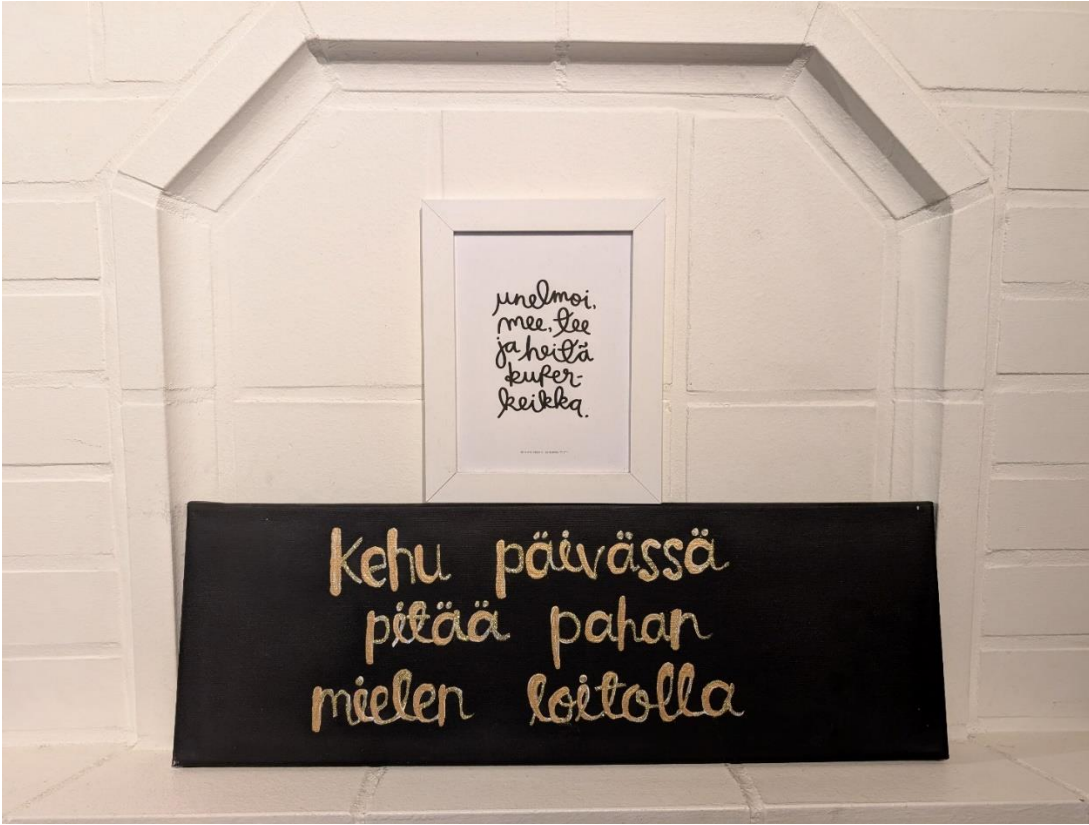 unelmoi,
mee, tee
ja heitä
kuper-
keikka.
Kehu päivässä
pitää pahan
mielen loitolla